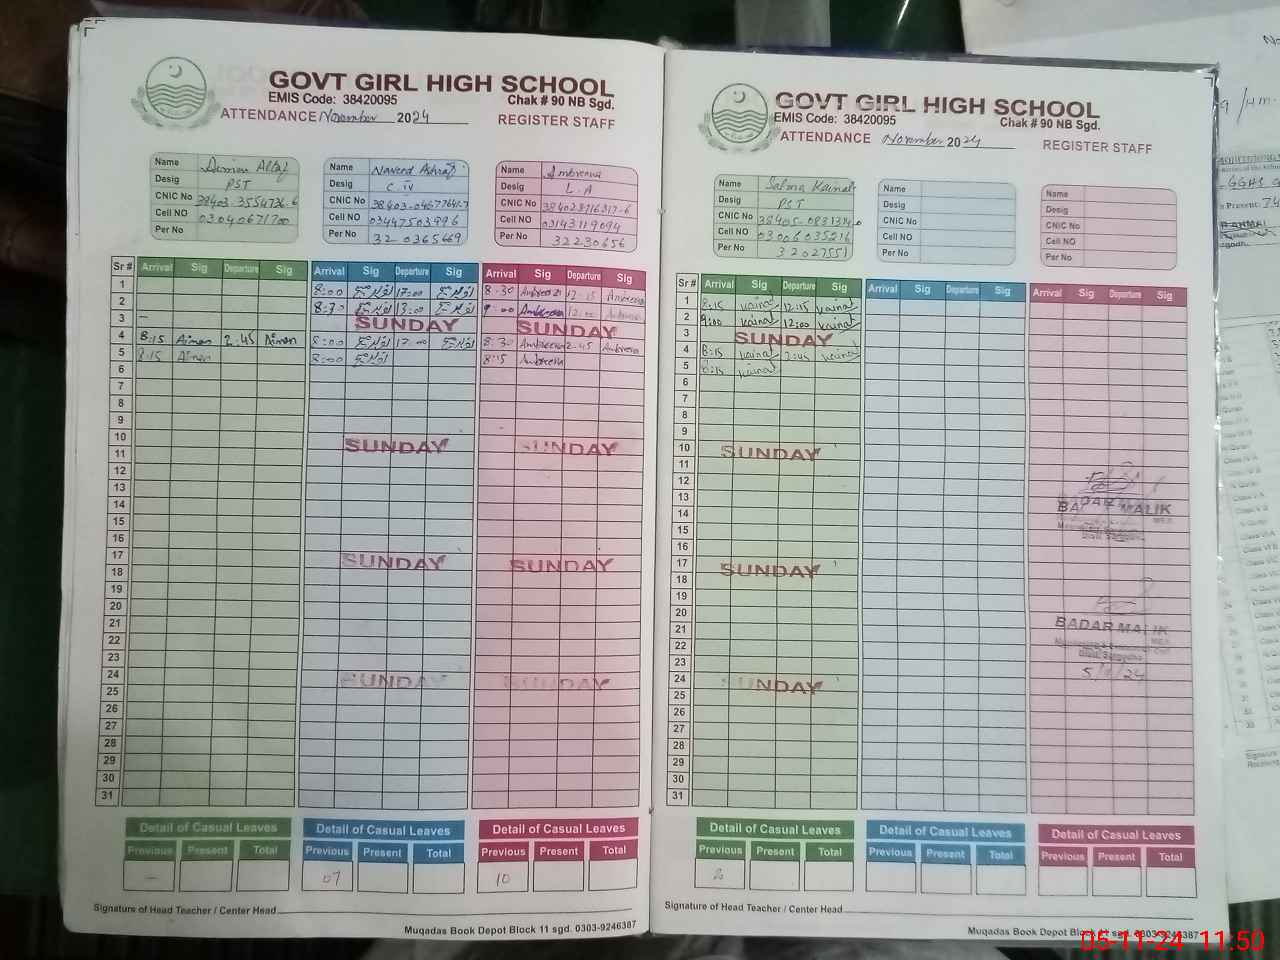 GOVT GIRL HIGH SCHOOL
EMIS Code: 38420095 Chak # 90 NB Sgd.
ATTENDANCE/November 2024 REGISTER STAFF
Name Altaf
Desig PST
CNIC No 38403-3554736-6
Cell NO 03040671700
Per No
Name Naveed Ashraf
Desig C. IV
CNIC No
Cell NO 03447503996
Per No 32 0365669
Name Ambreena
Desig L.A
CNIC No
Cell NO 03143119094
Per No 32230656
Sr # Arrival Sig Departure Sig Arrival Sig Departure Sig Arrival Sig Departure Sig
1 8:00 17:00 8:30 Ambreen 12:15 Ambreena
2 8:30 13:00 9:00 Ambreena 12:00
3 – SUNDAY SUNDAY
4 8:15 Aimen 2:45 Aimen 8:00 17:00 8:30 Ambreena 2:45 Ambreena
5 8:15 Aimen 8:00 8:15 Ambreena
6
7
8
9
10 SUNDAY SUNDAY
11
12
13
14
15
16
17 SUNDAY SUNDAY
18
19
20
21
22
23
24 SUNDAY SUNDAY
25
26
27
28
29
30
31
Detail of Casual Leaves Detail of Casual Leaves Detail of Casual Leaves
Previous Present Total Previous Present Total Previous Present Total
– 07 10
Signature of Head Teacher / Center Head
Muqadas Book Depot Block 11 sgd. 0303-9246387
GOVT GIRL HIGH SCHOOL
EMIS Code: 38420095 Chak # 90 NB Sgd.
ATTENDANCE November 2024 REGISTER STAFF
Name Salma Kainat
Desig PST
CNIC No
Cell NO 03006035216
Per No 32027551
Name
Desig
CNIC No
Cell NO
Per No
Name
Desig
CNIC No
Cell NO
Per No
Sr # Arrival Sig Departure Sig Arrival Sig Departure Sig Arrival Sig Departure Sig
1 8:15 kainat 12:45 kainat
2 9:00 kainat 12:00 kainat
3 SUNDAY
4 8:15 kainat 2:45 kainat
5 8:15 kainat
6
7
8
9
10 SUNDAY
11
12
13
14 BADAR MALIK
15
16
17 SUNDAY
18
19
20
21 BADAR MALIK
22
23
24 SUNDAY 5/11/24
25
26
27
28
29
30
31
Detail of Casual Leaves Detail of Casual Leaves Detail of Casual Leaves
Previous Present Total Previous Present Total Previous Present Total
2
Signature of Head Teacher / Center Head
Muqadas Book Depot Block 11 sgd. 0303-9246387
05-11-24 11:50